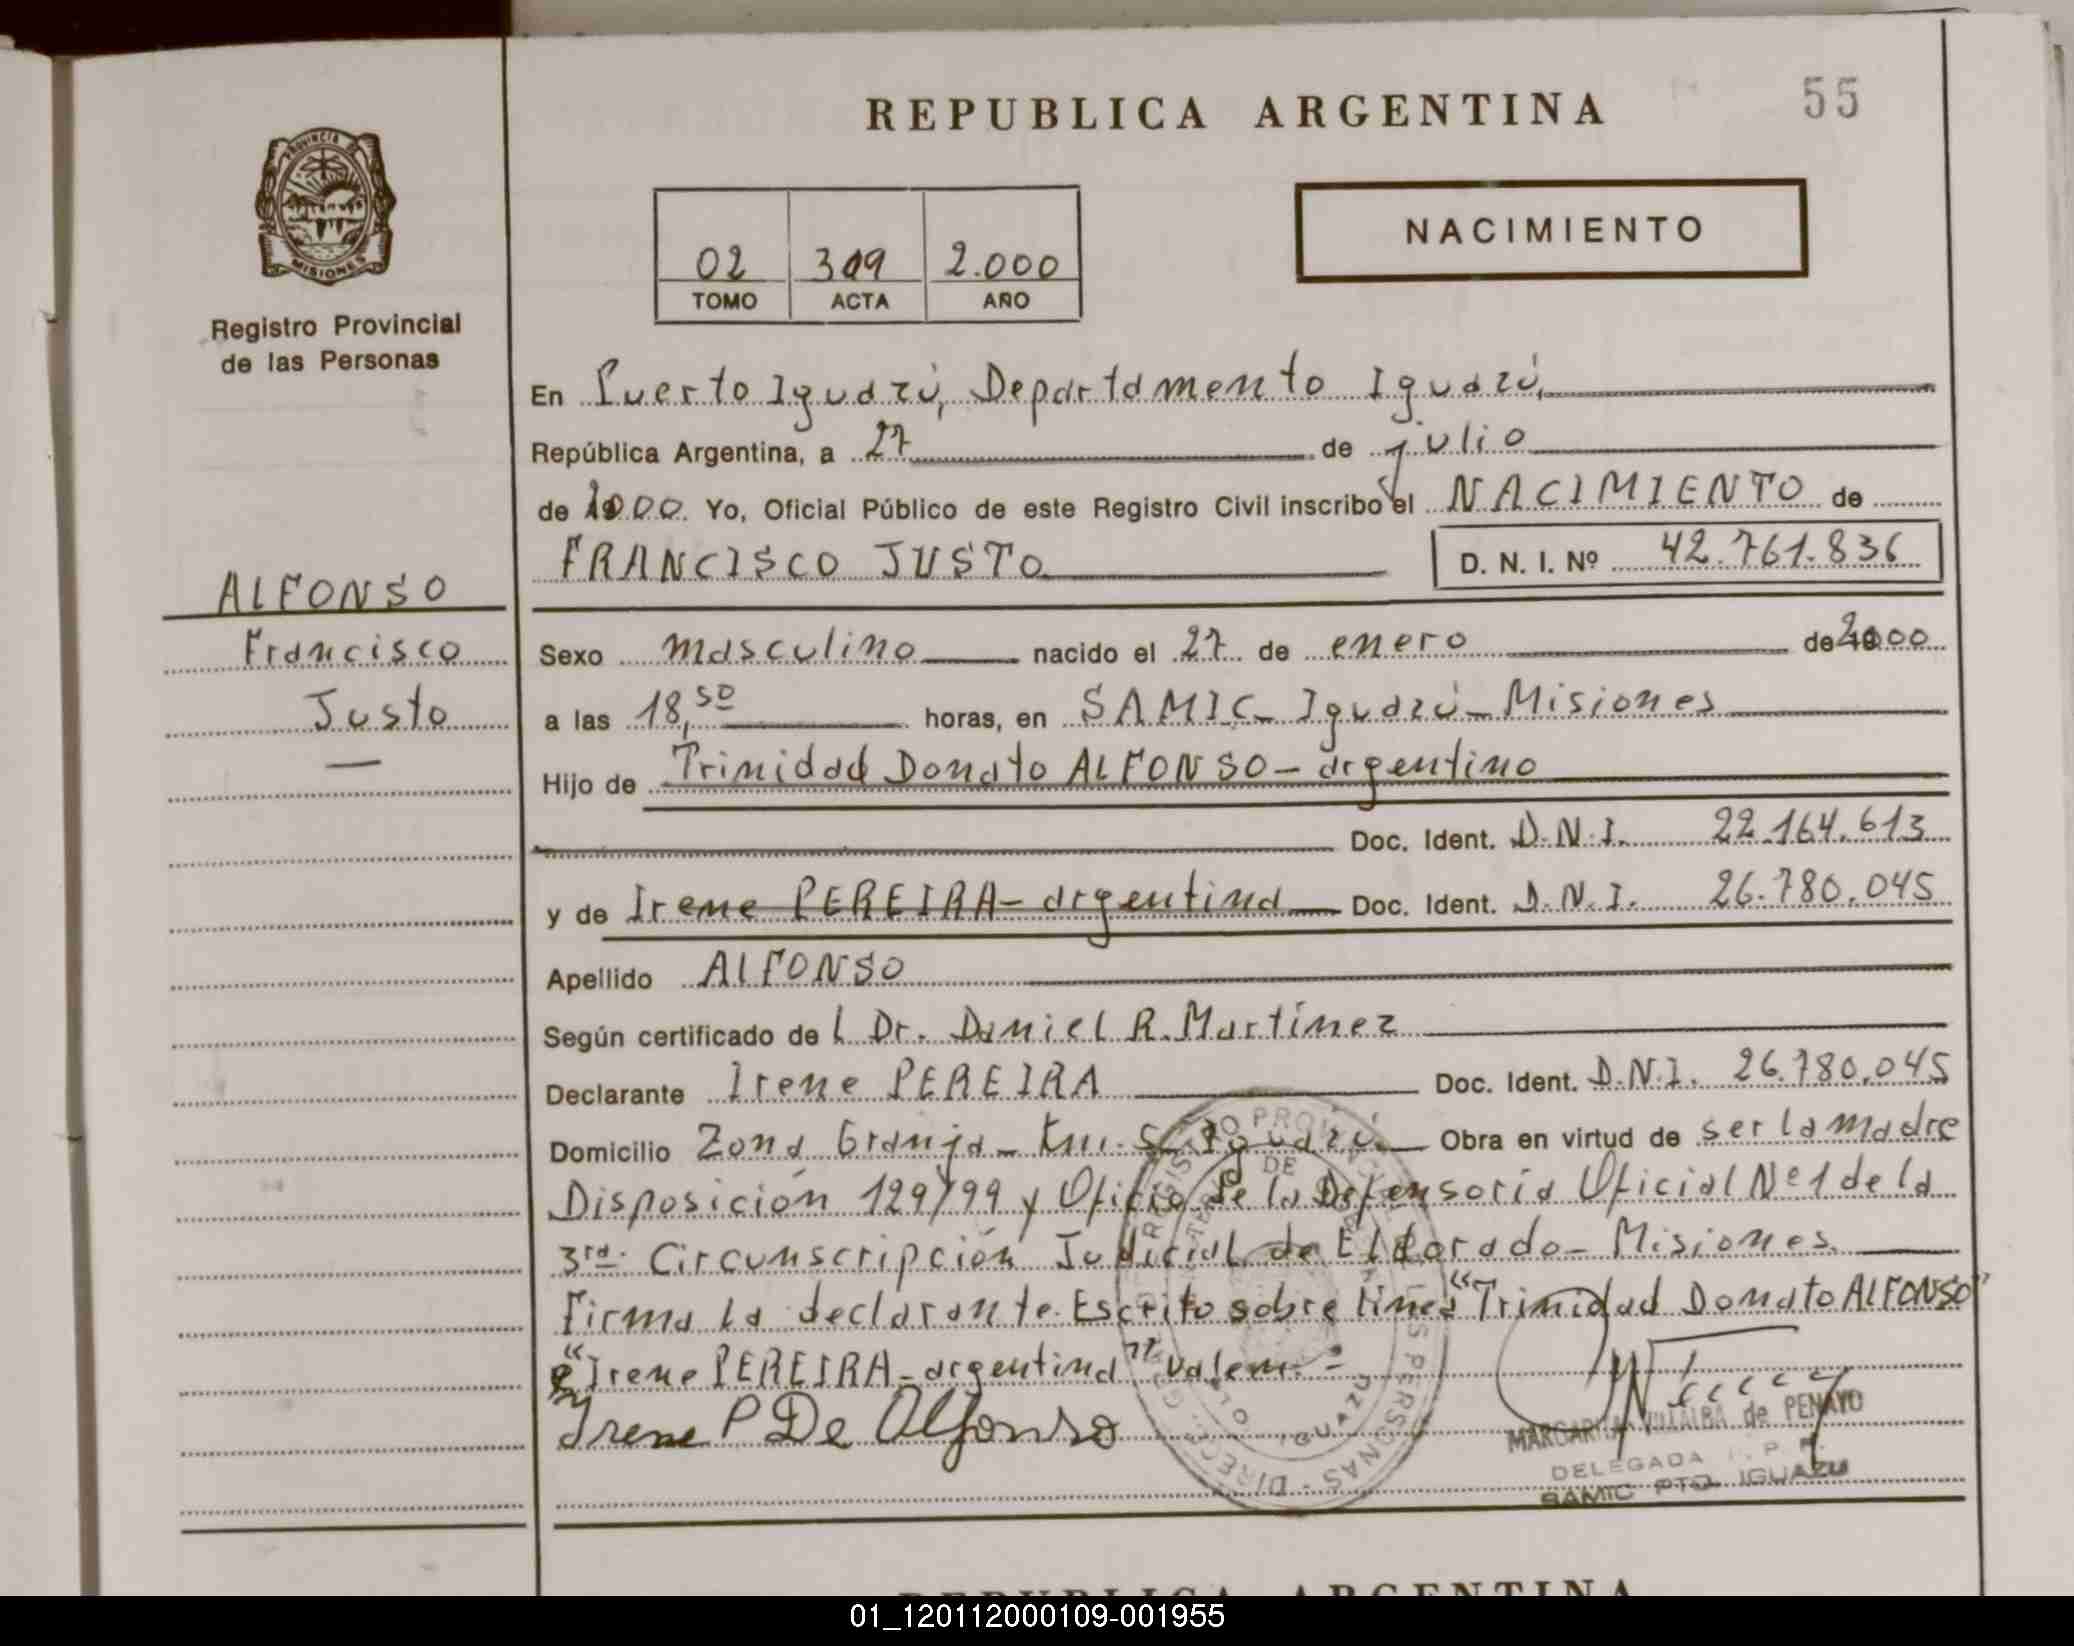 REPUBLICA ARGENTINA
55
PROVINCIA DE
MISIONES
Registro Provincial
de las Personas
NACIMIENTO
02 309 2.000
TOMO ACTA AÑO
En Puerto Iguazú, Departamento Iguazú,
República Argentina, a 27 de julio
de 2000 Yo, Oficial Público de este Registro Civil inscribo el NACIMIENTO de
FRANCISCO JUSTO D. N. I. Nº 42.761.836
ALFONSO
Francisco
Justo
Sexo masculino nacido el 27 de enero de 2000
a las 18,50 horas, en SAMIC_ Iguazú_ Misiones
Hijo de Trinidad Donato ALFONSO - argentino
Doc. Ident. D.N.I. 22.164.613
y de Irene PEREIRA - argentina Doc. Ident. D.N.I. 26.780.045
Apellido ALFONSO
Según certificado de l Dr. Daniel R. Martínez
Declarante Irene PEREIRA Doc. Ident. D.N.I. 26.780.045
Domicilio Zona Granja - Km. 5 - Iguazú Obra en virtud de ser la madre
Disposición 129/99 y Oficio de la Defensoría Oficial Nº 1 de la
3ra. Circunscripción Judicial de Eldorado - Misiones.
Firma la declarante. Escrito sobre línea "Trinidad Donato ALFONSO"
e "Irene PEREIRA - argentina" valen. -
Irene P De Alfonso
REGISTRO PROVINCIAL DE LAS PERSONAS - DIRECC. G
PTO IGUAZU
MARGARITA VILLALBA de PENAYO
DELEGADA R. P. P.
SAMIC PTO. IGUAZU
REPUBLICA ARGENTINA
01_120112000109-001955